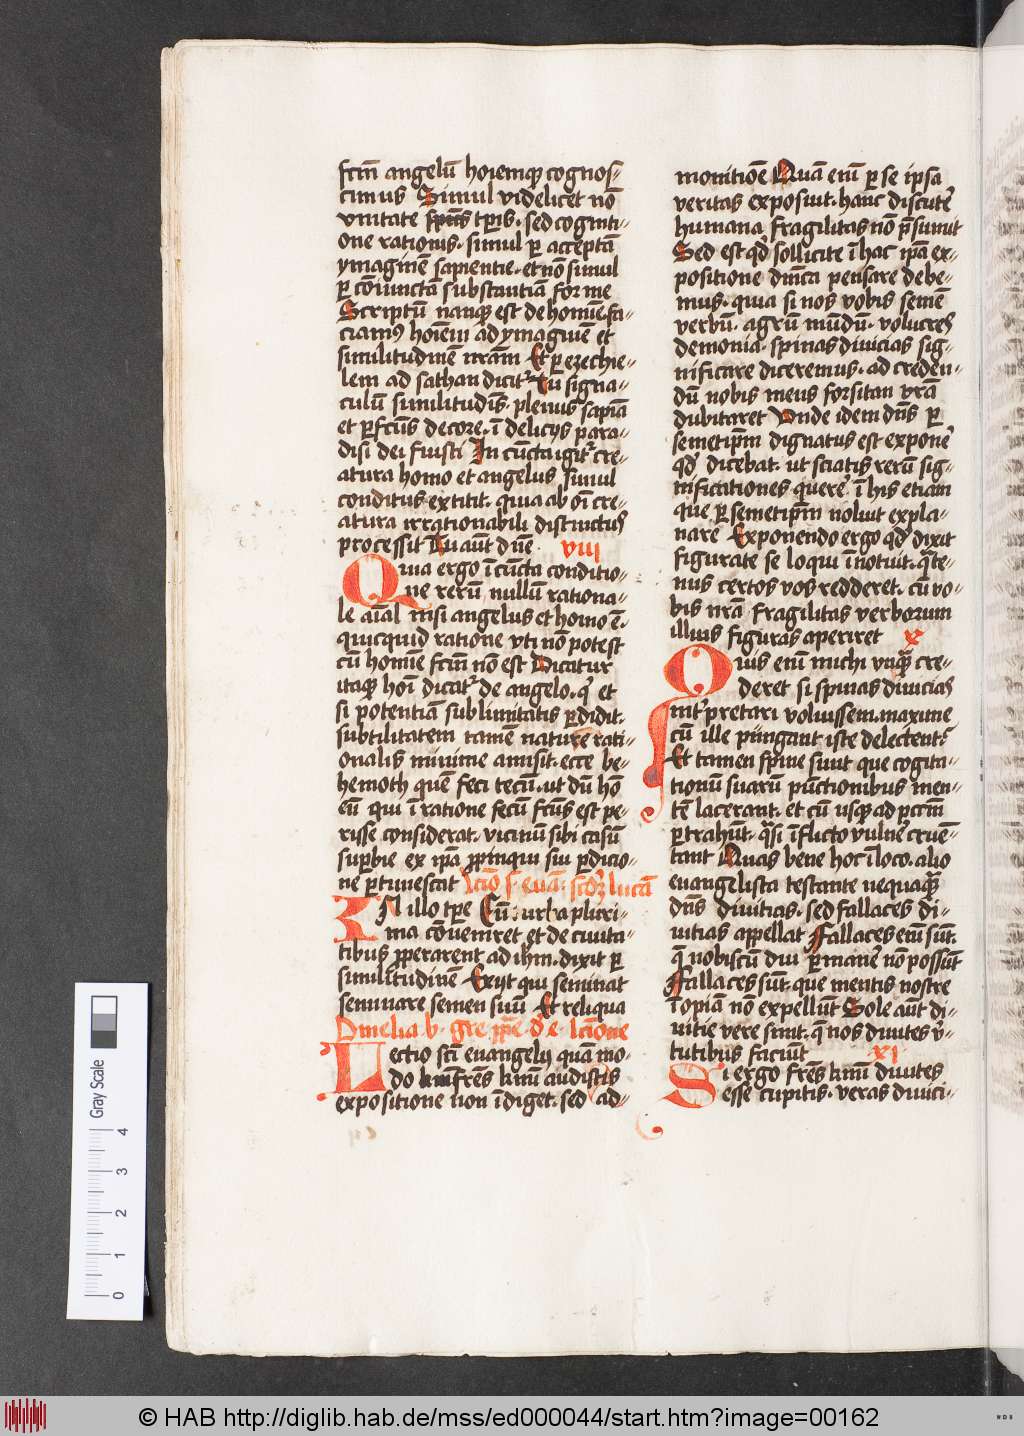 fcm̄ angelū hoīemqꝫ cognos-
cimus Simul videlicet nō
vnitate spūs tp̄is. sed cogniti-
one rationis. simul ꝑ acceptā
ymaginē sapientie. et nō simul
ꝑ cōiuncta substantiā forme
Scriptū namqꝫ est de homīe. fa-
ciamꝰ hoīem ad ymaginē et
similitudinē nr̄am Et ꝑ ezechie-
lem ad sathan dicit᷑ Tu signa-
culū similitudīs. plenus sapīa
et ꝑfcūs decore. ī delicijs para-
disi dei fuisti In cūcta igit᷑ cre-
atura homo et angelus simul
conditus extitit. quia ab oī cre-
atura irrationabili distinctꝰ
processit Tu aūt dn̄e viii
Quia ergo ī cūcta conditio-
ne rerū nullū rationa-
le aīal nisi angelus et homo ē.
quicquid ratione vti nō potest
cū homīe fcm̄ nō est Dicatur
itaqꝫ hoī dicat᷑ de angelo. qͥ et
si potentiā sublimitatis ꝑdidit.
subtilitatem tamen nature rati-
onalis minime amisit. ecce be-
hemoth quē feci tecū. ut dū hō
eū qui ī ratione secū fcūs est pe-
risse considerat. vicinū sibi casū
suꝑbie ex ip̄a ꝓpinqui sui ꝑdicio-
ne ꝑtimescat Lcīo s. euā. scd̄ꝫ lucā
IN illo tp̄e Cū turba pluri-
ma cōuenīret et de ciuita-
tibus ꝓperarent ad ihm̄. dixit ꝑ
similitudinē Exijt qui seminat
seminare semen suū Et reliqua
Omelia b. gre. pp̄e. d. e. lcīone
Lectio scī euangelij quā mo-
do frēs kmī audistis
expositione non īdiget. sed ad-
monitiōe Quā eni᷑ ꝑ se ipsa
veritas exposuit. hanc discute᷑
humana fragilitas nō p̄sumit
Sed est qͩ sollicite ī hac ip̄a ex-
positione dn̄ica pensare debe-
mus. quia si nos vobis semē
verbū. agrū mūdū. volucres
demonia. spinas diuicias sig-
nificare diceremus. ad creden-
dū nobis mens forsitan vr̄a
dubitaret Vnde idem dn̄s ꝑ
semetip̄m dignatus est expone᷑
qͩ dicebat. ut sciatis rerū sig-
nificationes quere᷑ ī his etiam
que ꝑ semetip̄m noluit expla-
nare Exponendo ergo qͩ dixit
figurate se loqui īnotuit. qͣte-
nus certos vos redderet. cū vo-
bis nr̄a fragilitas verborum
illius figuras aperiret x
Quis eni᷑ michi vnqͣꝫ cre-
deret si spinas diuicias
int᷑pretari voluissem. maxime
cū ille pūngant iste delectent᷑
Et tamen spine sunt que cogita-
tionū suarū pūctionibus men-
tē lacerant. et cū usqꝫ ad pctm̄
ꝑtrahūt. qͣsi īflicto vulne᷑ cruē-
tant Quas bene hoc ī loco. alio
euangelista testante nequaqͣꝫ
dn̄s diuitias. sed fallaces di-
uitias appellat Fallaces eni᷑ sūt.
qͥ nobiscū diu ꝑmane᷑ nō possūt
Fallaces sūt. que mentis nostre
īopiam nō expellūt Sole aūt di-
uitie vere sunt. qͥ nos diuites v᷑-
tutibus faciūt xi
Si ergo frēs kmī diuites
esse cupitis. veras diuici-
Gray Scale
0 1 2 3 4
© HAB http://diglib.hab.de/mss/ed000044/start.htm?image=00162